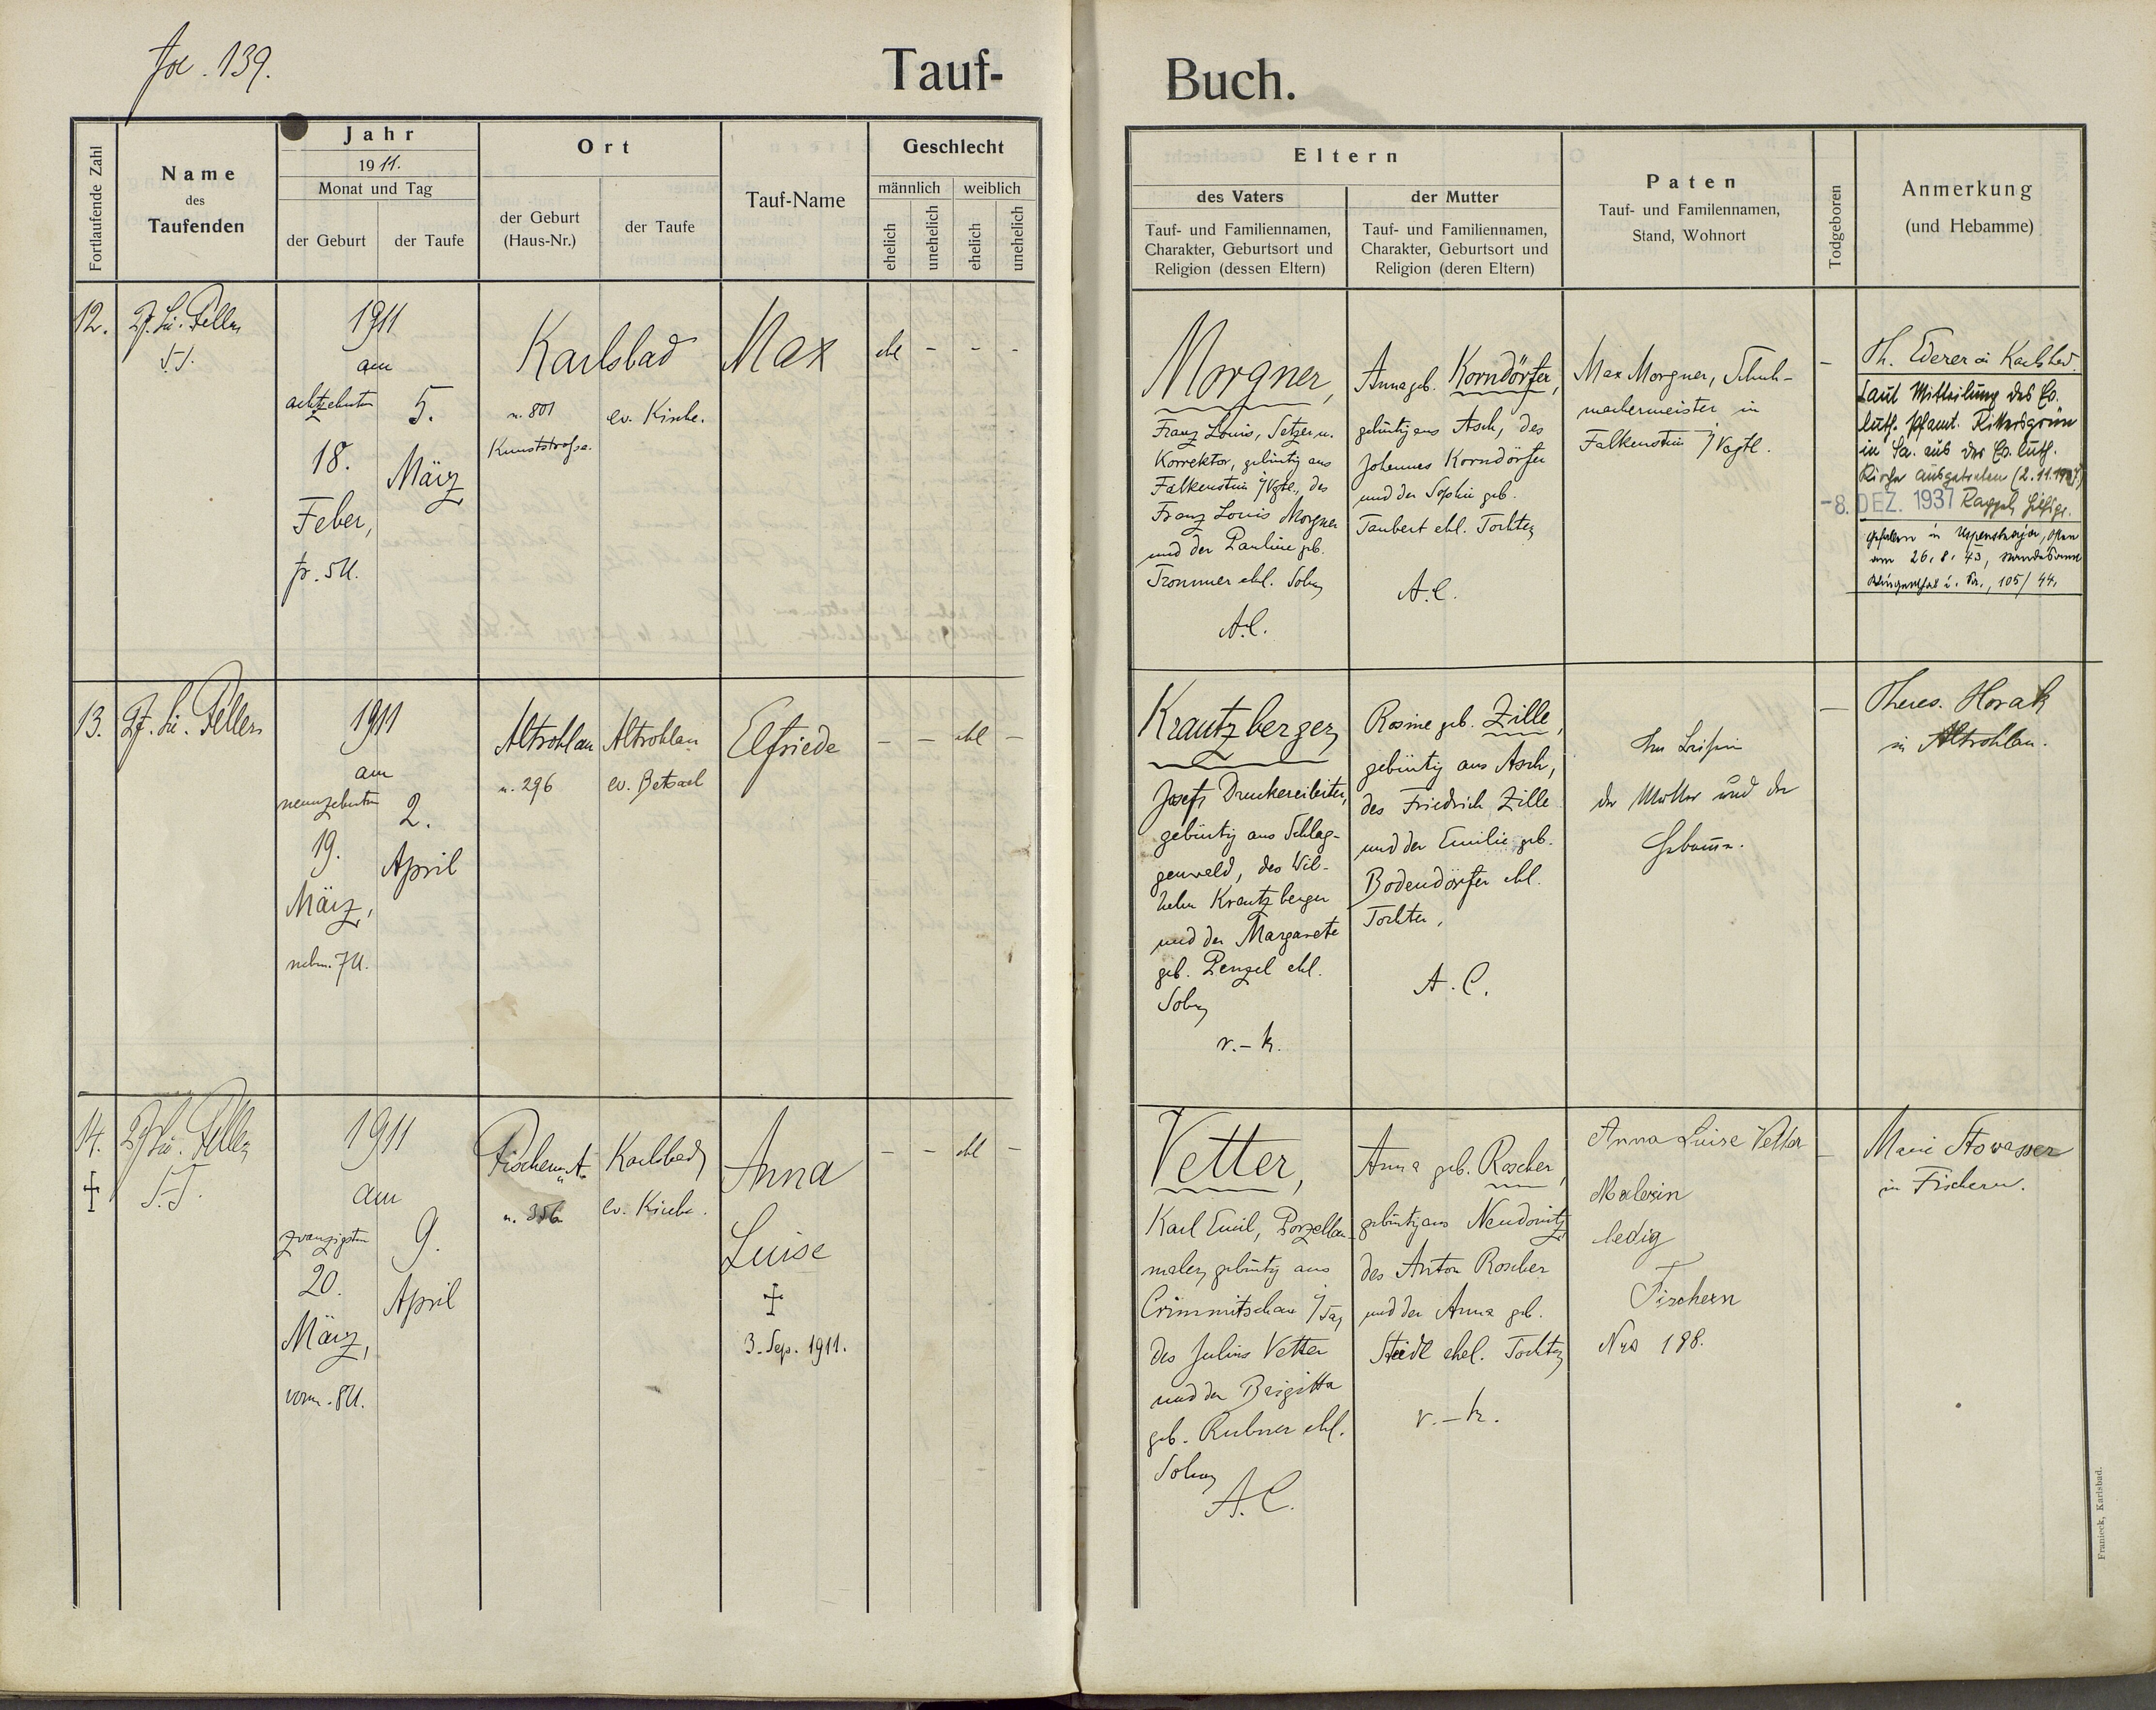 fol. 139.
Tauf-
Buch.
Fortlaufende Zahl
Name
des
Taufenden
Jahr
1911.
Monat und Tag
der Geburt
der Taufe
Ort
der Geburt
(Haus-Nr.)
der Taufe
Tauf-Name
Geschlecht
männlich
weiblich
ehelich
unehelich
ehelich
unehelich
Eltern
des Vaters
Tauf- und Familiennamen,
Charakter, Geburtsort und
Religion (dessen Eltern)
der Mutter
Tauf- und Familiennamen,
Charakter, Geburtsort und
Religion (deren Eltern)
Paten
Tauf- und Familennamen,
Stand, Wohnort
Todgeboren
Anmerkung
(und Hebamme)
12.
1911
am
achtzehnten
18.
Feber,
fr. 5U.
5.
März
Karlsbad
n. 801
Kunststrasse.
ev. Kirche.
Max
ehl - - -
Morgner,
Franz Louis, Setzer u.
Korrektor, gebürtig aus
Falkenstein i/Vgtl., des
Franz Louis Morgner
und der Pauline geb.
Trommer ehl. Sohn
A.C.
Anna geb. Korndörfer,
gebürtig aus Asch, des
Johannes Korndörfer
und der Sophie geb.
Taubert ehl. Tochter
A.C.
Max Morgner, Schuh-
machermeister in
Falkenstein i/Vogtl.
-
Th. Ederer in Karlsbad.
Laut Mitteilung des Ev.
luth. Pfamt. Rittersgrün
in Sa. aus der Ev. luth.
Kirche ausgetreten (2.11.1937)
-8. DEZ. 1937
gefallen in
am 26.8.43, Standesamt
105/44.
13.
1911
am
neunzehnten
19.
März,
nchm. 7U.
2.
April
Altrohlau
n. 296
Altrohlau
ev. Betsaal
Elfriede
- - ehl -
Krautzberger,
Josef, Druckereileiter,
gebürtig aus Schlag-
genwald, des Wil-
helm Krautzberger
und der Margarete
geb. Penzel ehl.
Sohn
r.-k.
Rosine geb. Zille,
gebürtig aus Asch,
des Friedrich Zille
und der Emilie geb.
Bodendörfer ehl.
Tochter,
A.C.
der Mutter und der
-
Theres. Horak
in Altrohlau.
14.
1911
am
zwanzigsten
20.
März,
vorm. 8U.
9.
April
Fischern
n. 356
Karlsbad
ev. Kirche.
Anna
Luise
3. Sep. 1911.
- - ehl -
Vetter,
Karl Emil, Porzellan-
maler, gebürtig aus
Crimmitschau i/Sa,
des Julius Vetter
und der Brigitta
geb. Rubner ehl.
Sohn
A.C.
Anna geb. Roscher,
gebürtig aus Neudonitz
des Anton Roscher
und der Anna geb.
Steidl ehel. Tochter
r.-k.
Anna Luise Vetter
Malerin
ledig
Fischern
Nro 188.
-
Marie Stowasser
in Fischern.
Franieck, Karlsbad.